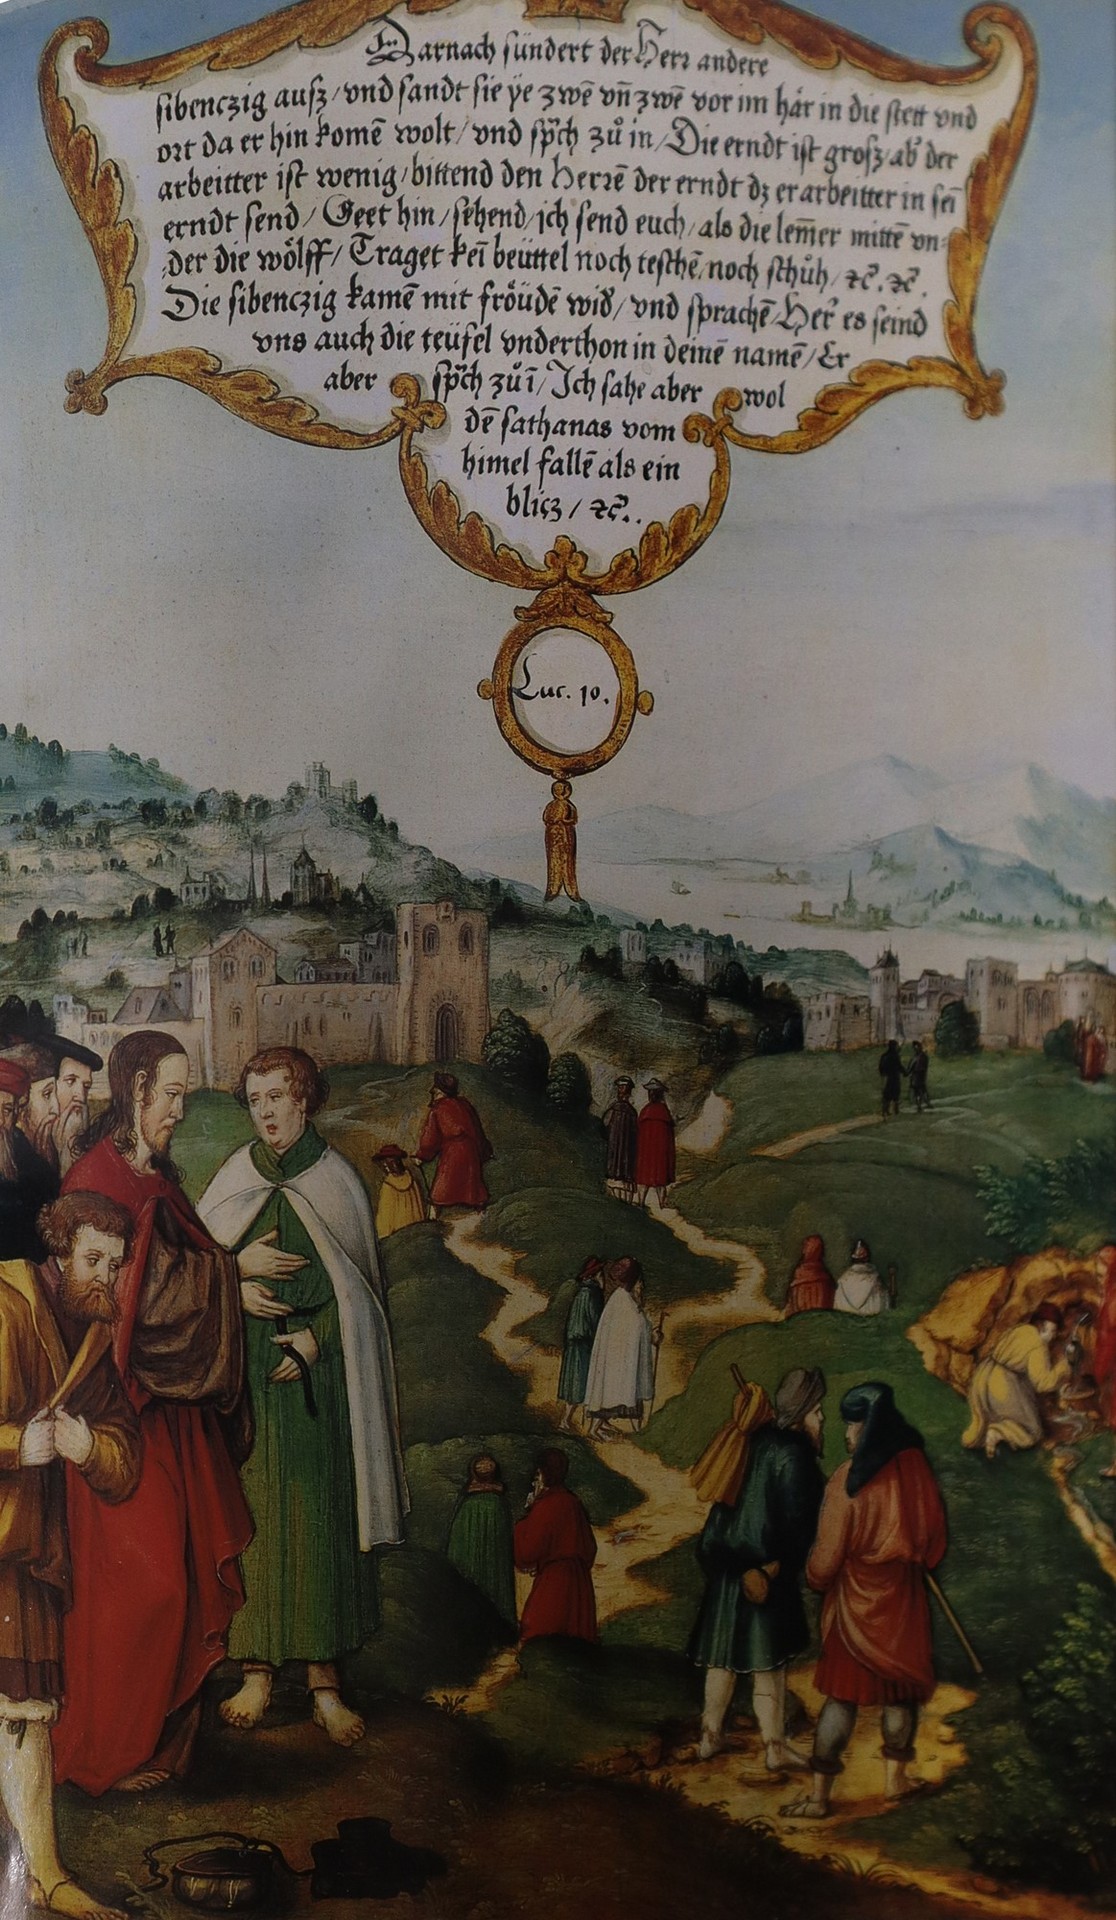 Darnach sündert der Herr andere
sibenczig ausz / vnd sandt sie ÿe zwē vn̄ zwē vor im här in die stett vnd
ort da er hin komē wolt / vnd sp̈ch zů in / Die erndt ist grosz / ab᷒ der
arbeitter ist wenig / bittend den Herrē der erndt dz er arbeitter in sei̅
erndt send / Geet hin / sehend / ich send euch / als die lem̄er mittē vn-
der die wölff / Traget kei̅ beüttel noch teschē / noch schůh / ⁊c̄. ⁊c̄.
Die sibenczig kamē mit fröüdē wid᷒ / vnd sprachē / Her᷒ es seind
vns auch die teüfel vnderthon in deinē namē / Er
aber sp̈ch zů ī / Ich sahe aber wol
dē sathanas vom
himel fallē als ein
blicz / ⁊c̄..
Luc. 10.